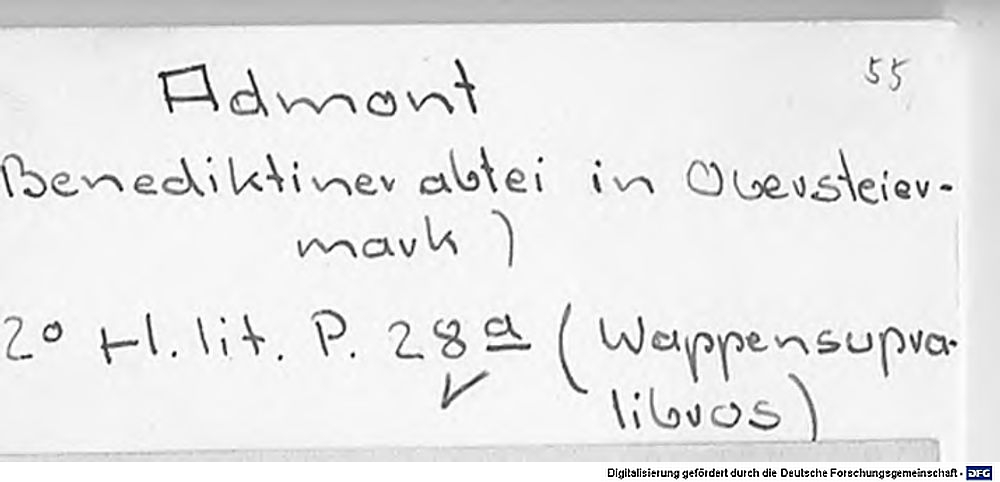 55
Admont
Benediktinerabtei in Obersteier-
mark)
2° H. lit. P. 28 a (Wappensupra-
libros)
Digitalisierung gefördert durch die Deutsche Forschungsgemeinschaft - DFG